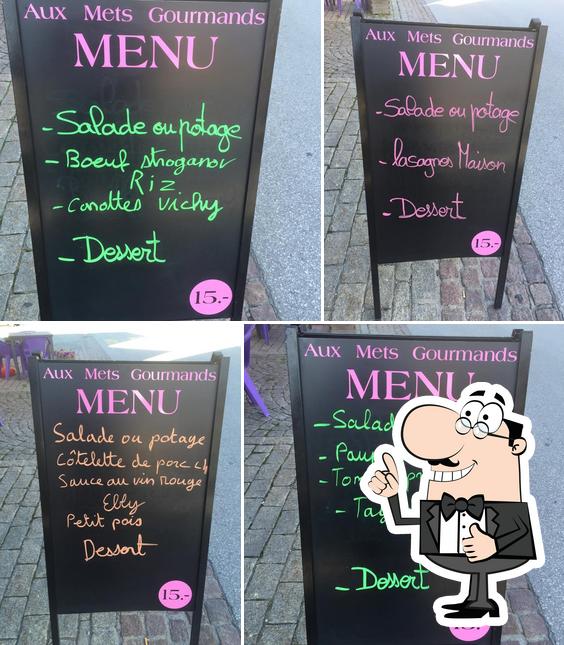 Aux Mets Gourmands
MENU
- Salade ou potage
- Boeuf stroganov
Riz
- Carottes vichy
- Dessert
15.-
Aux Mets Gourmands
MENU
- Salade ou potage
- lasagnes Maison
- Dessert
15.-
Aux Mets Gourmands
MENU
Salade ou potage
Côtelette de porc
Sauce au vin rouge
Ebly
Petit pois
Dessert
15.-
Aux Mets Gourmands
MENU
- Salad
- Dessert